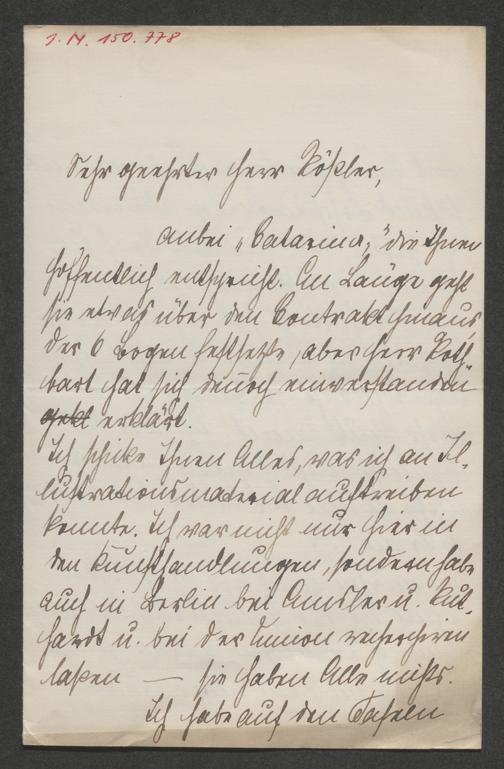 J. N. 150.778
Sehr geehrter Herr Rößler,
anbei „Catarina," die Ihnen
hoffentlich entspricht. An Länge geht
sie etwas über den Contrakt hinaus
der 6 Bogen festsetzte, aber Herr Roth-
bart hat sich dennoch einverstanden
erklärt.
Ich schicke Ihnen Alles, was ich an Il-
lustrationsmaterial auftreiben
konnte. Ich war nicht nur hier in
den Kunsthandlungen, sondern habe
auch in Berlin bei Amsler u. Rut-
hardt u. bei der Union recherchiren
laßen — sie haben Alle nichts.
Ich habe auf den Tafeln